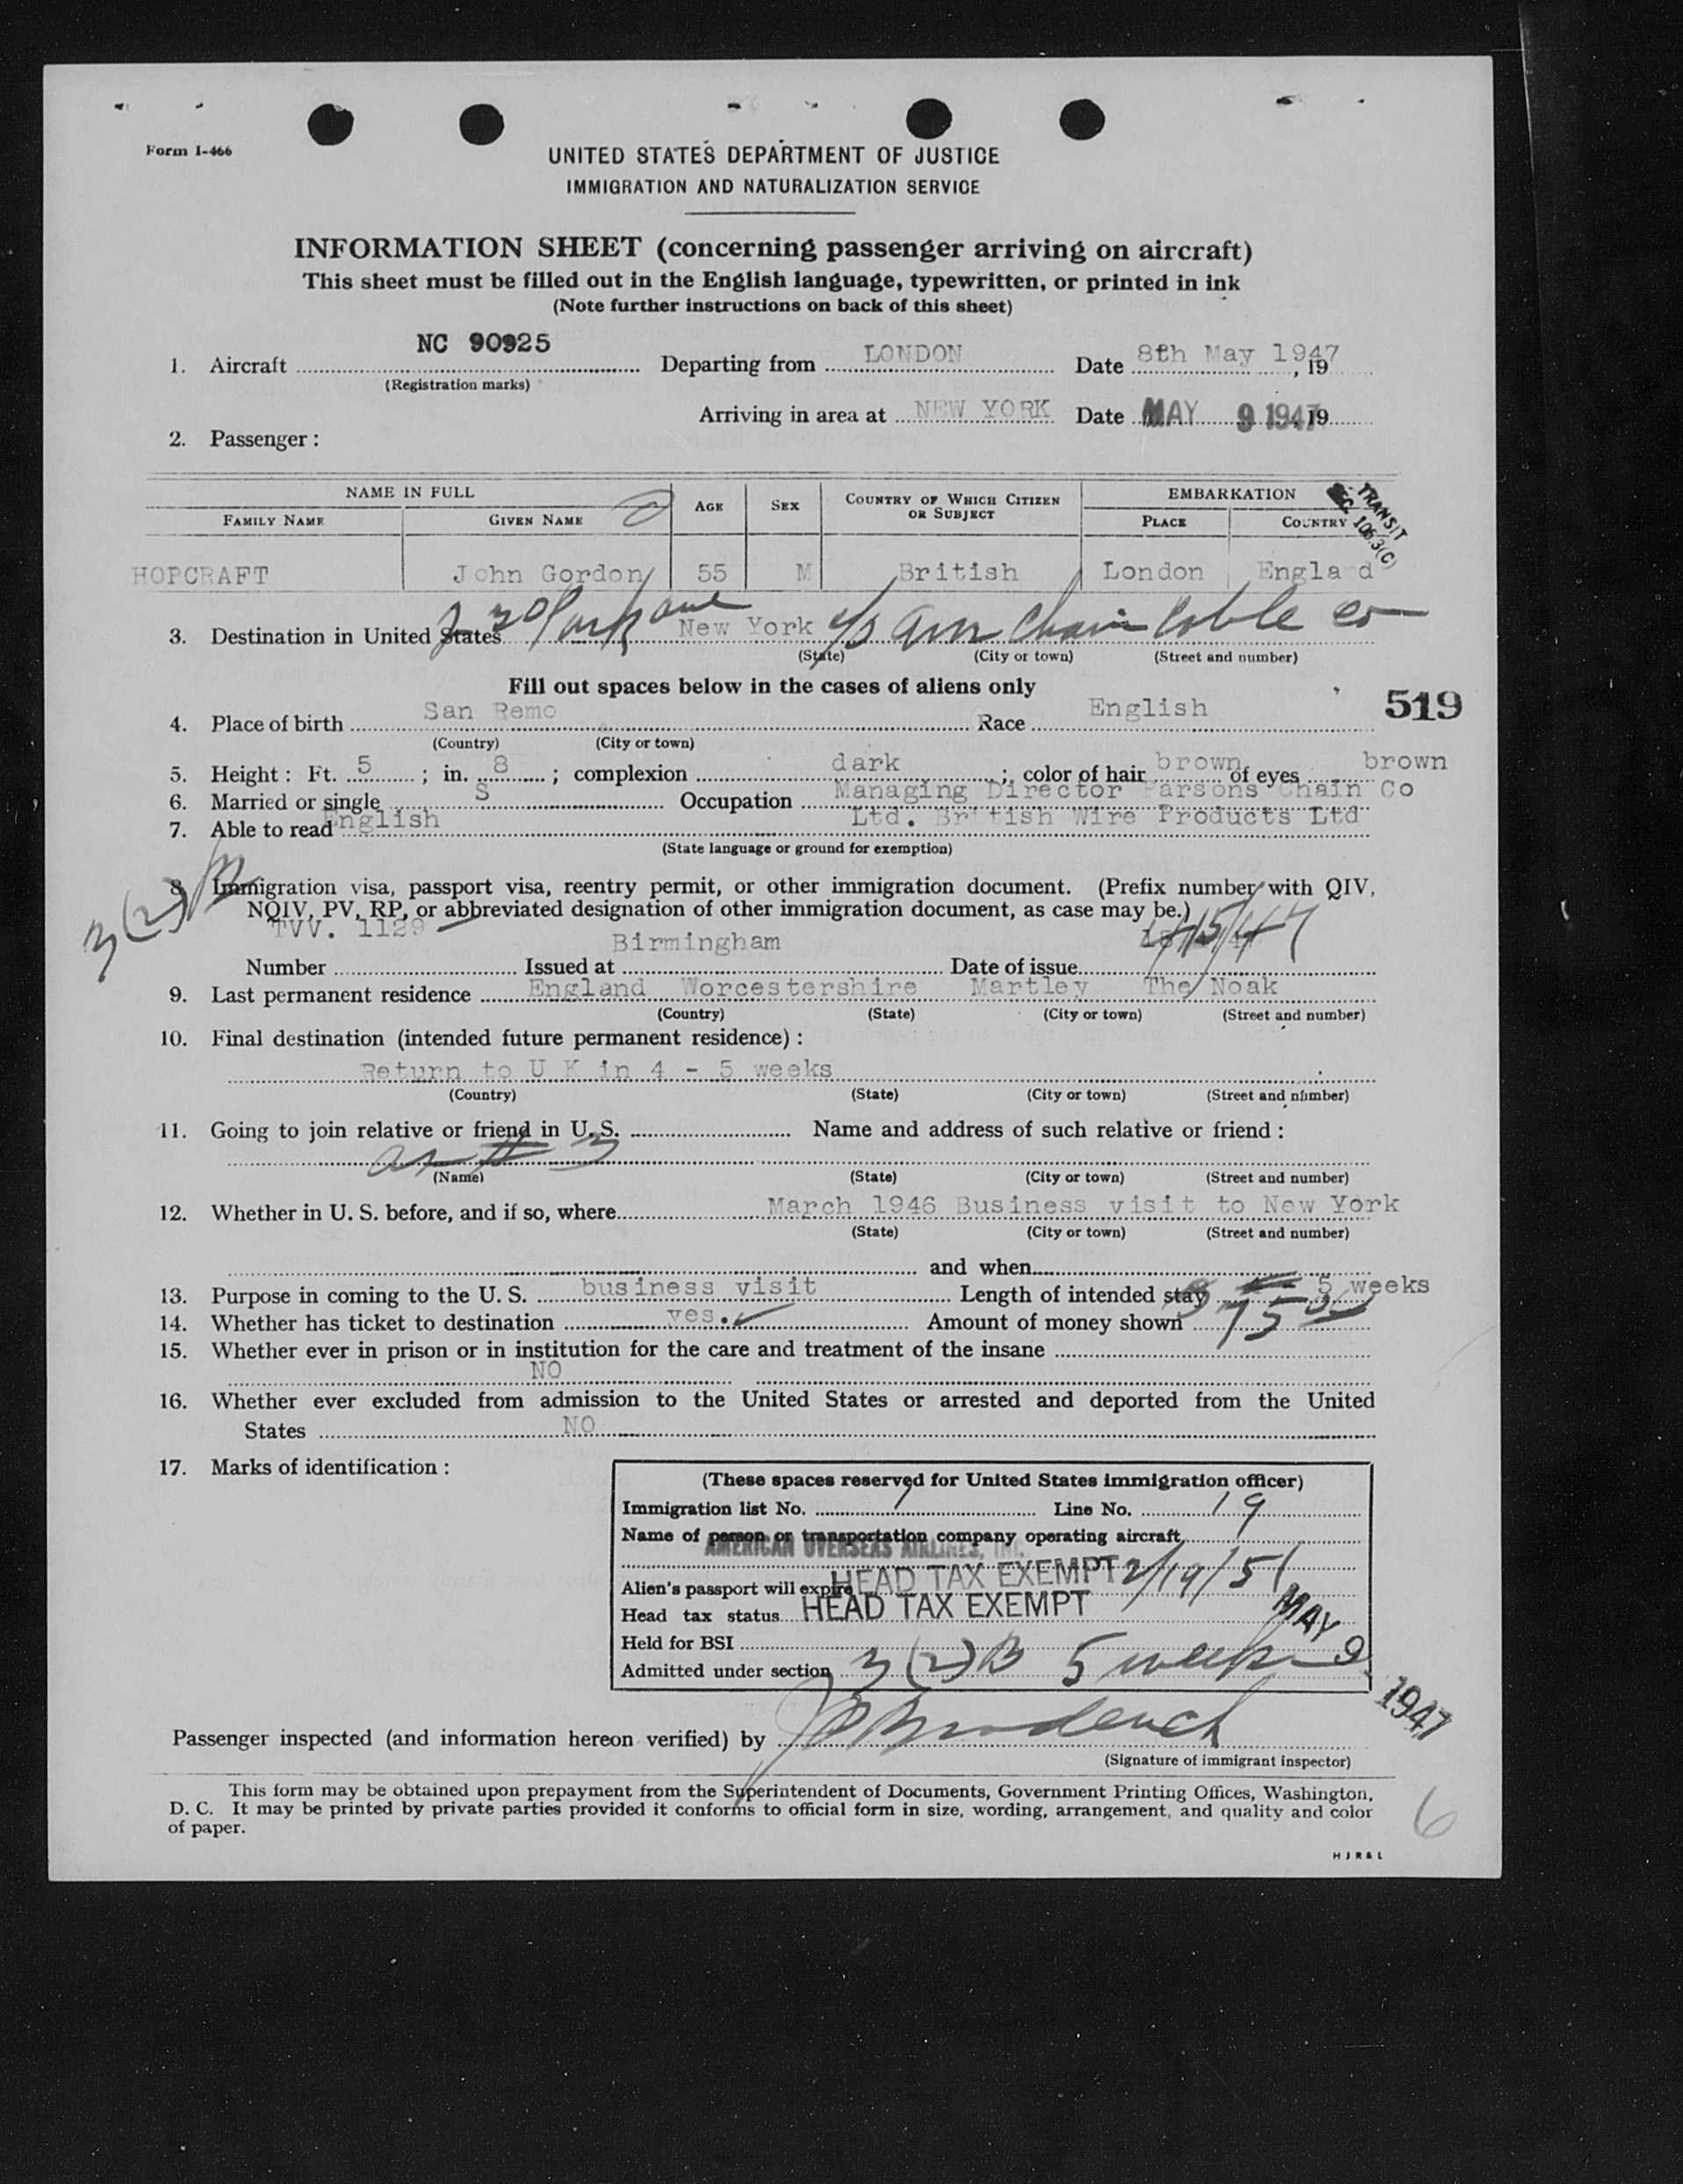 Form I-466
UNITED STATES DEPARTMENT OF JUSTICE
IMMIGRATION AND NATURALIZATION SERVICE
INFORMATION SHEET (concerning passenger arriving on aircraft)
This sheet must be filled out in the English language, typewritten, or printed in ink
(Note further instructions on back of this sheet)
1. Aircraft NC 90925 Departing from LONDON Date 8th May 1947, 19
(Registration marks)
Arriving in area at NEW YORK Date MAY 9 1947 19
2. Passenger:
NAME IN FULL AGE SEX COUNTRY OF WHICH CITIZEN OR SUBJECT EMBARKATION
FAMILY NAME GIVEN NAME PLACE COUNTRY
TRANSIT
SEC 106.3(C)
HOPCRAFT John Gordon 55 M British London Engla d
3. Destination in United States 230 Park ave New York c/o Am Chain Cable Co
(State) (City or town) (Street and number)
Fill out spaces below in the cases of aliens only
519
4. Place of birth San Remo Race English
(Country) (City or town)
5. Height: Ft. 5; in. 8; complexion dark; color of hair brown of eyes brown
6. Married or single S Occupation Managing Director Parsons Chain Co
7. Able to read English Ltd. British Wire Products Ltd
(State language or ground for exemption)
3(2)B
8. Immigration visa, passport visa, reentry permit, or other immigration document. (Prefix number with QIV,
NQIV, PV, RP, or abbreviated designation of other immigration document, as case may be.)
TVV. 1129 Birmingham
Number Issued at Date of issue
9. Last permanent residence England Worcestershire Martley The Noak
(Country) (State) (City or town) (Street and number)
10. Final destination (intended future permanent residence):
Return to U K in 4 - 5 weeks
(Country) (State) (City or town) (Street and number)
11. Going to join relative or friend in U. S. Name and address of such relative or friend:
as # 3
(Name) (State) (City or town) (Street and number)
12. Whether in U. S. before, and if so, where March 1946 Business visit to New York
(State) (City or town) (Street and number)
and when
13. Purpose in coming to the U. S. business visit Length of intended stay 5 weeks
14. Whether has ticket to destination yes. Amount of money shown $75
15. Whether ever in prison or in institution for the care and treatment of the insane
NO
16. Whether ever excluded from admission to the United States or arrested and deported from the United
States NO
17. Marks of identification:
(These spaces reserved for United States immigration officer)
Immigration list No. 1 Line No. 19
Name of person or transportation company operating aircraft
AMERICAN OVERSEAS AIRLINES, INC.
Alien's passport will expire HEAD TAX EXEMPT 2/19/51
Head tax status HEAD TAX EXEMPT
Held for BSI
Admitted under section 3(2)B 5 weeks
MAY 9 1947
Passenger inspected (and information hereon verified) by
(Signature of immigrant inspector)
This form may be obtained upon prepayment from the Superintendent of Documents, Government Printing Offices, Washington,
D. C. It may be printed by private parties provided it conforms to official form in size, wording, arrangement, and quality and color
of paper.
6
H J R & L